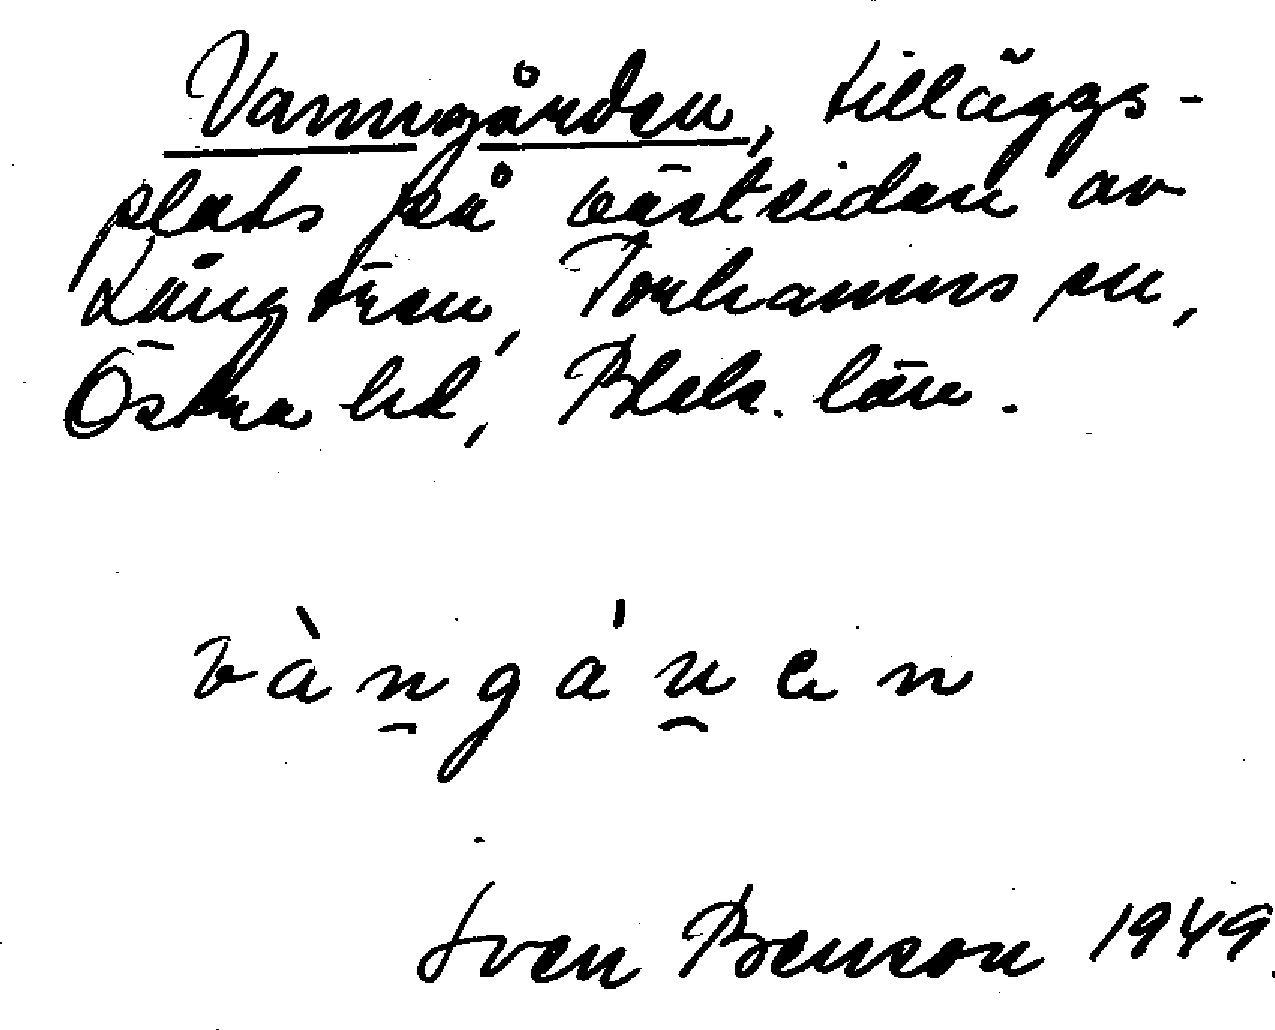 Vanngården, tilläggs-
plats på västsidan av
Långören, Torhamns sn,
Östra hd, Blek. län.
vàngán en
Sven Benson 1949.